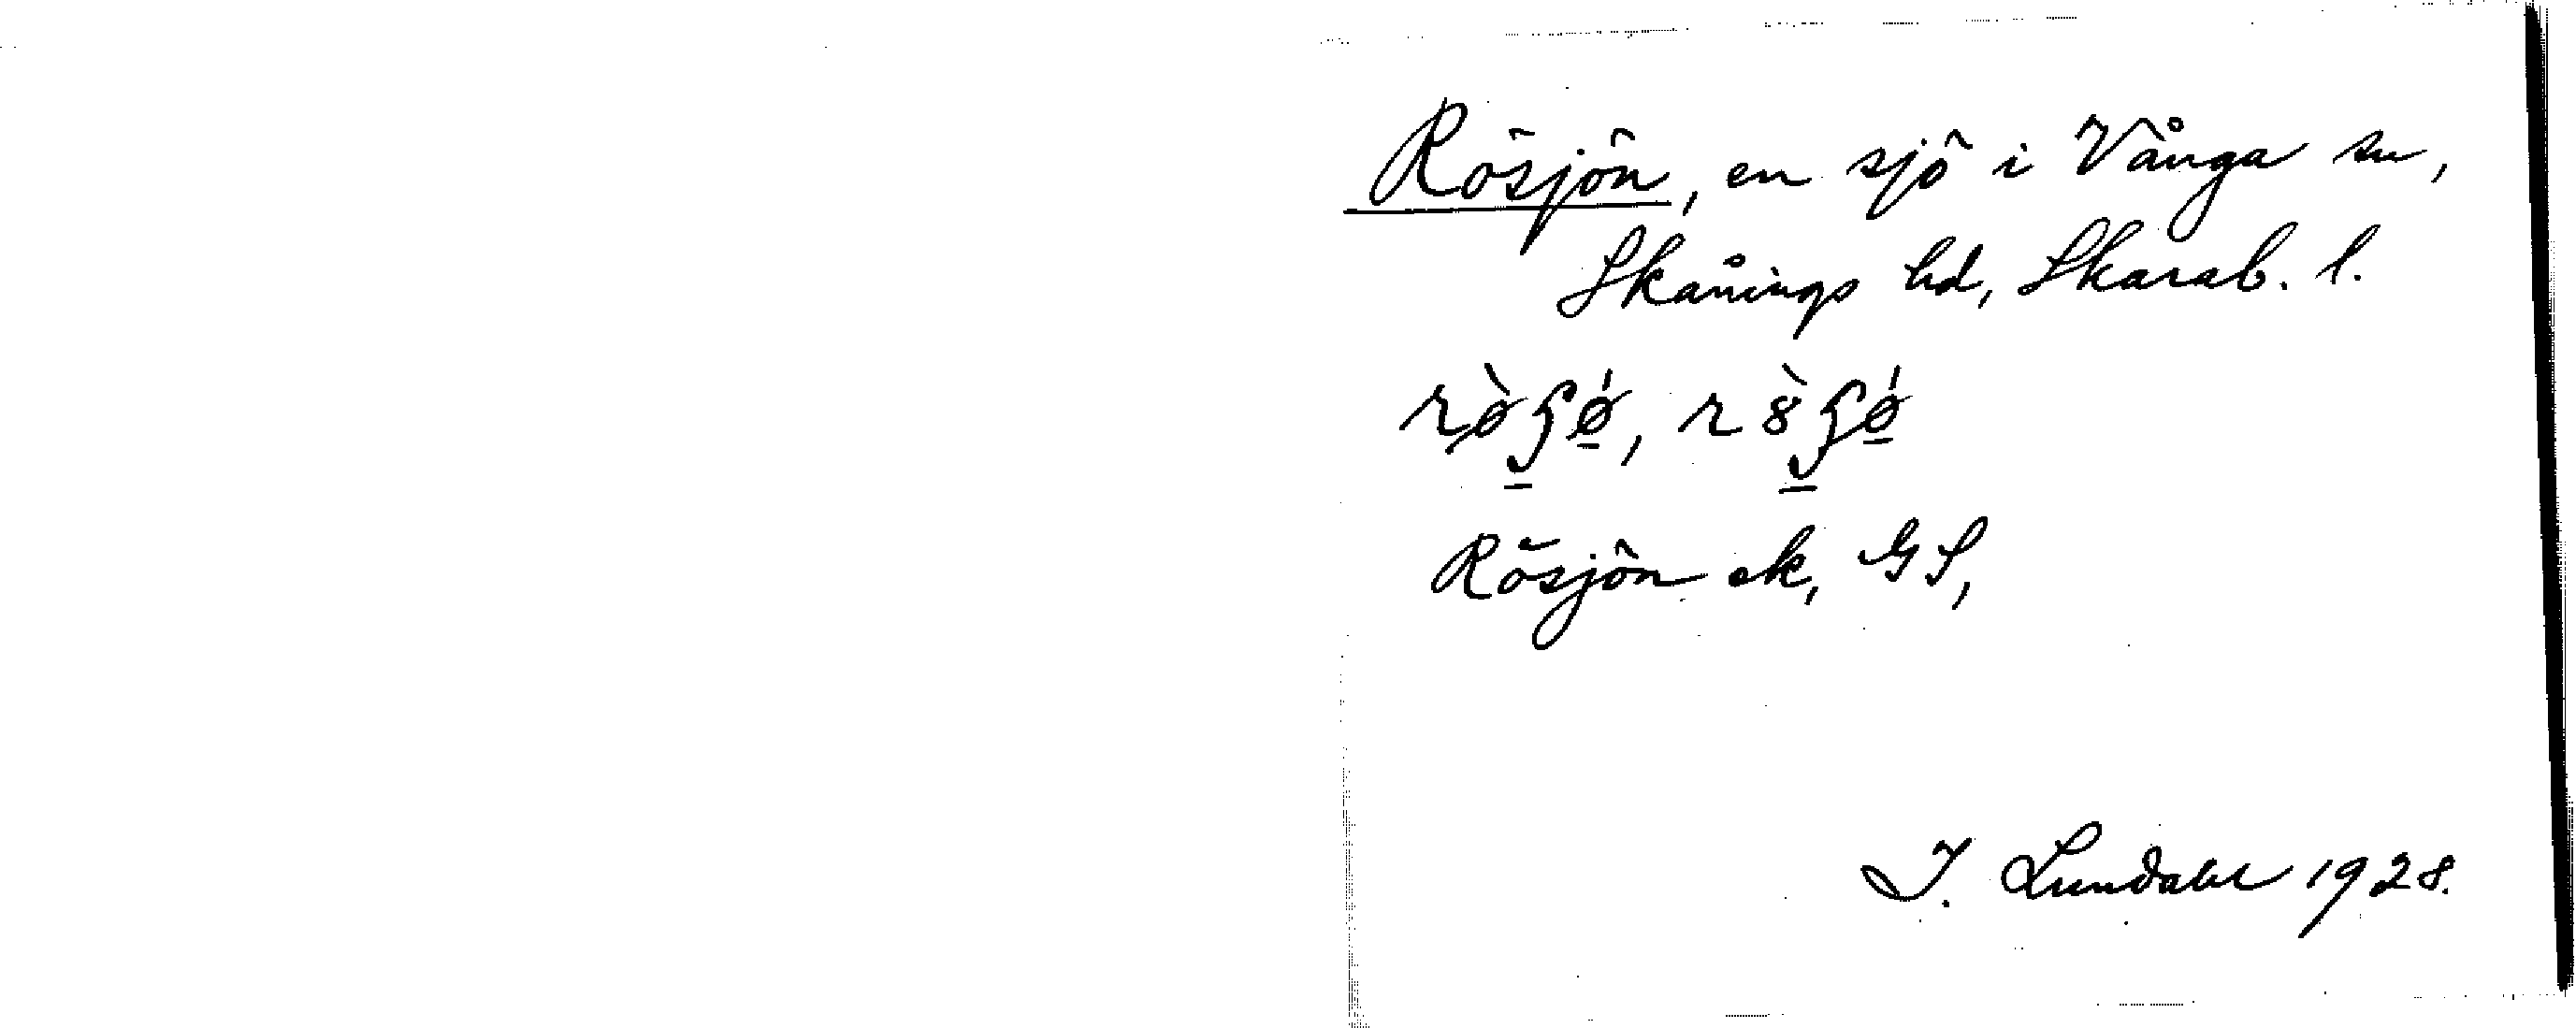 Rösjön, en sjö i Vånga sn,
Skånings hd, Skarab. l.
rø̀ʂǿ, r8̀ʂǿ
Rösjön ek, GS,
I. Lundahl 1928.